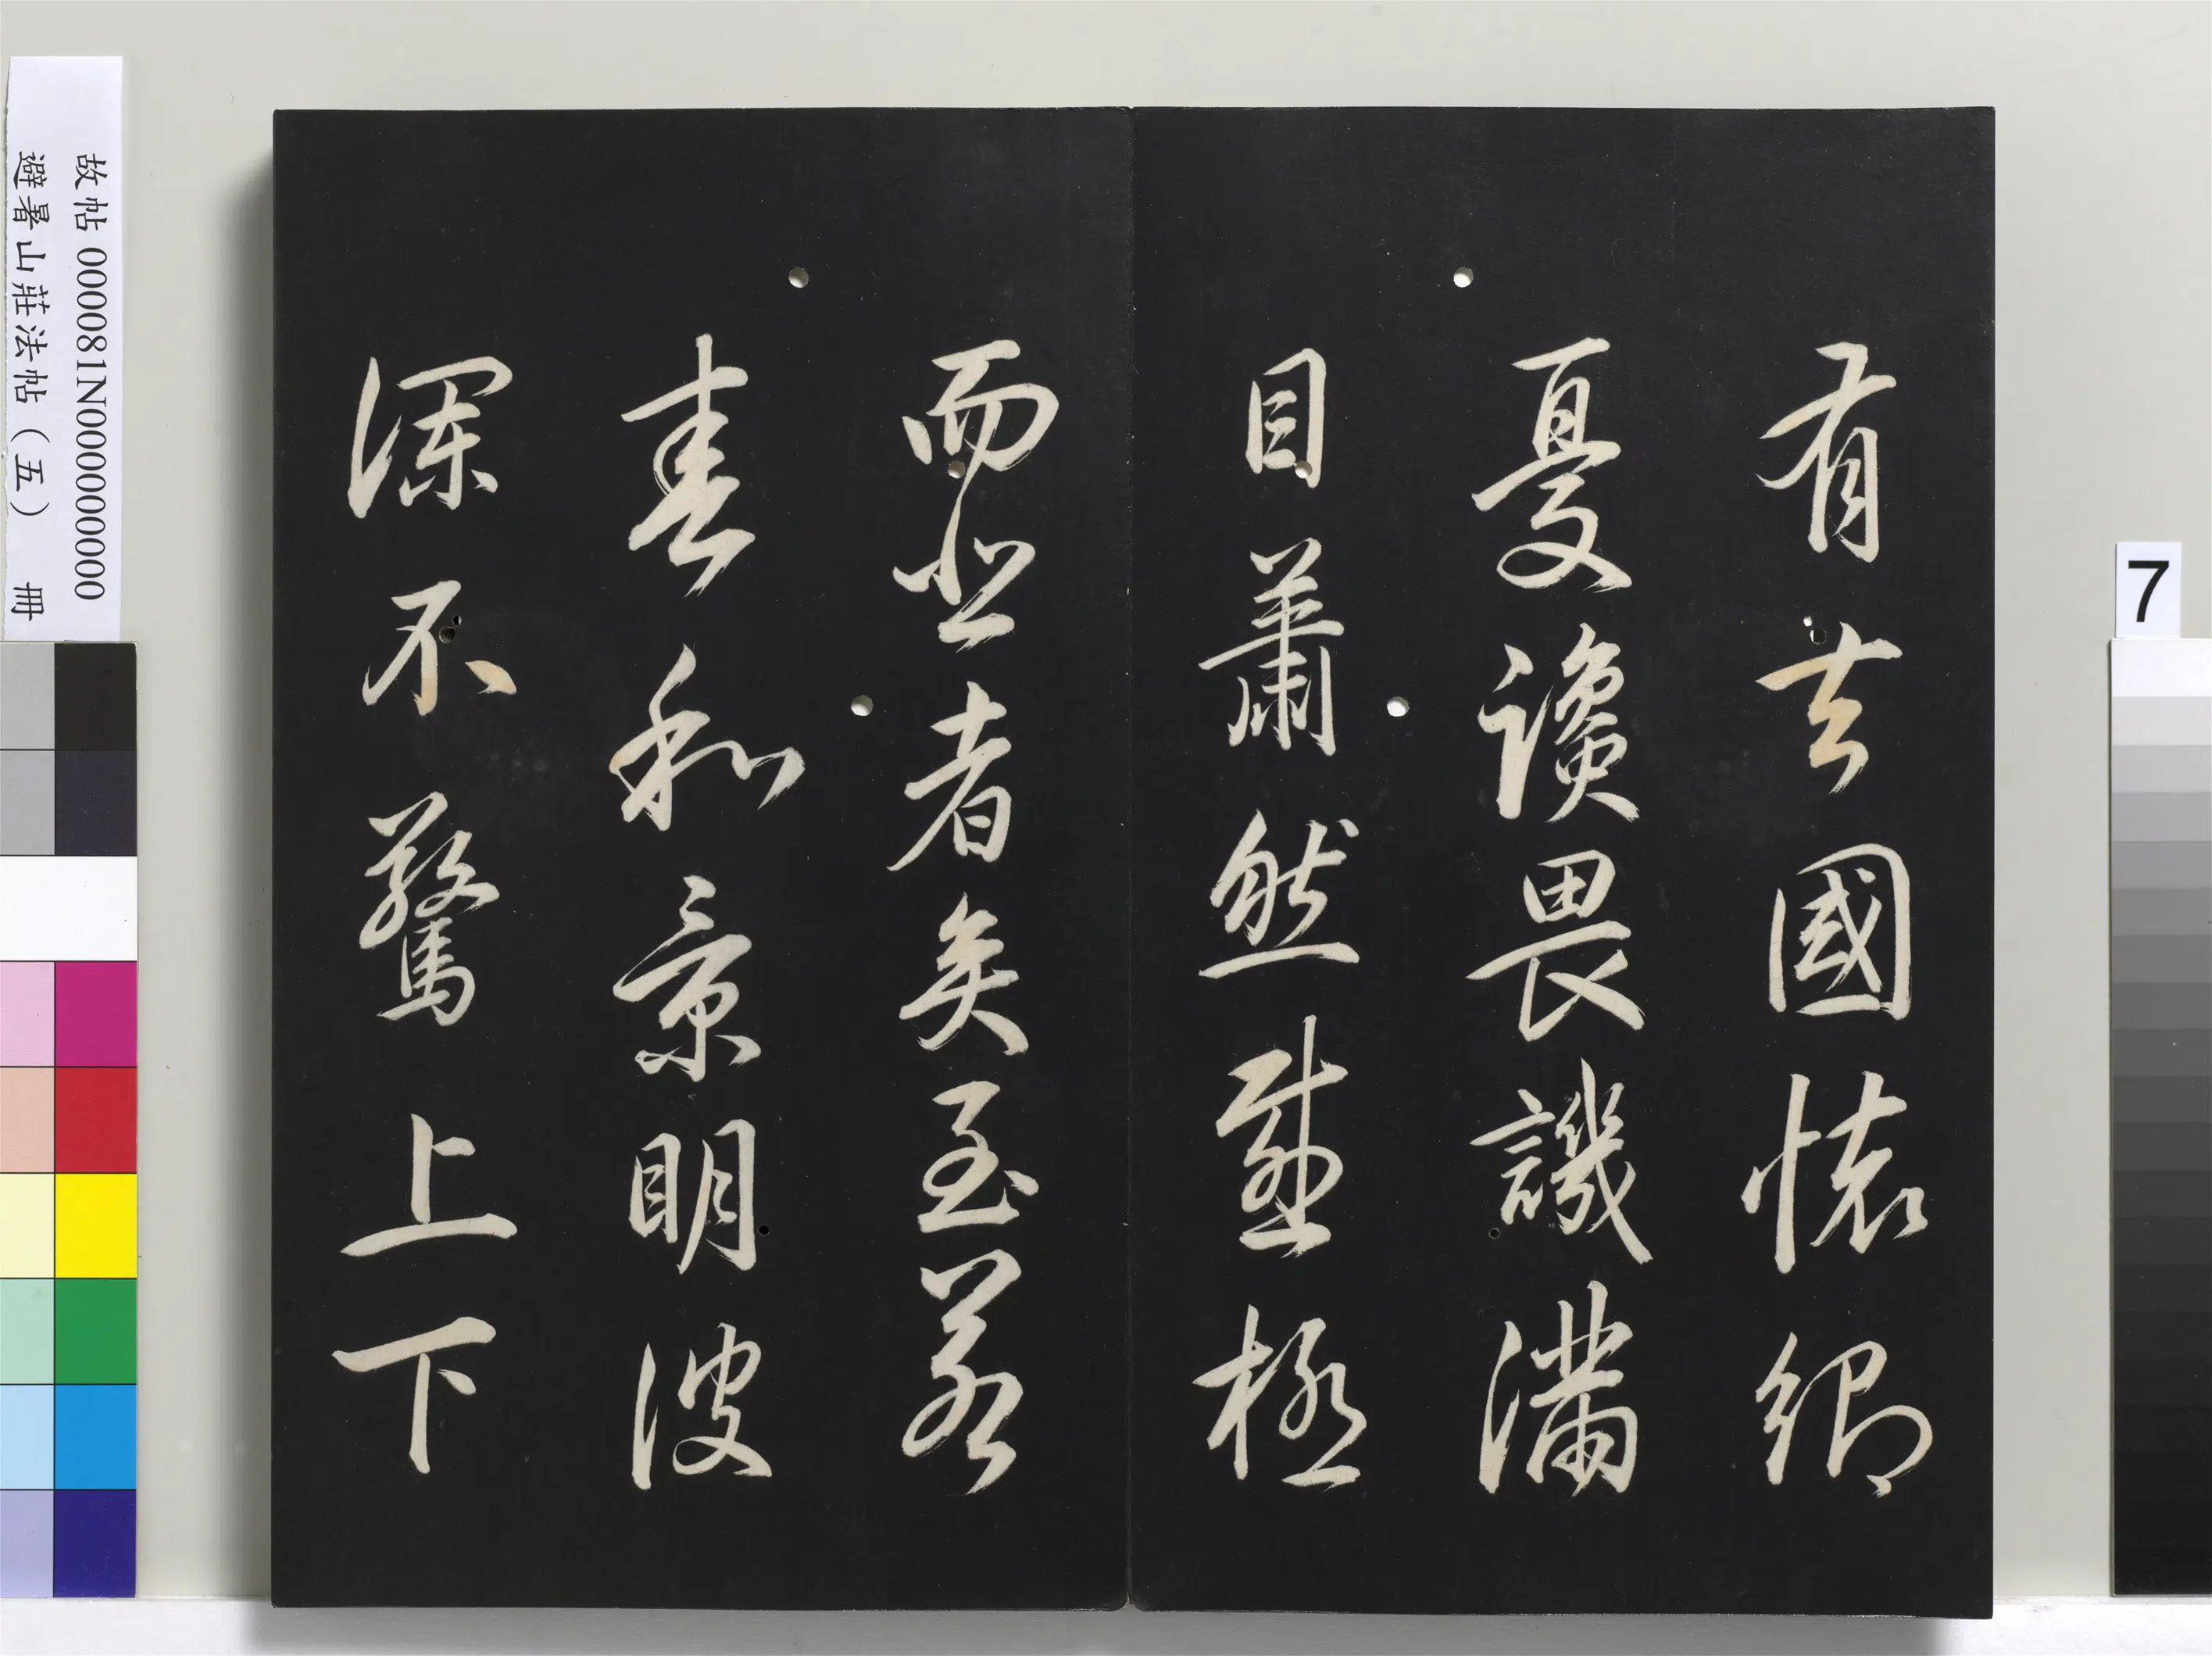 有去國懷鄉
憂讒畏譏滿
目蕭然感極
而悲者矣至若
春和景明波
瀾不驚上下
故帖 000081N000000000
避暑山莊法帖（五） 冊
7